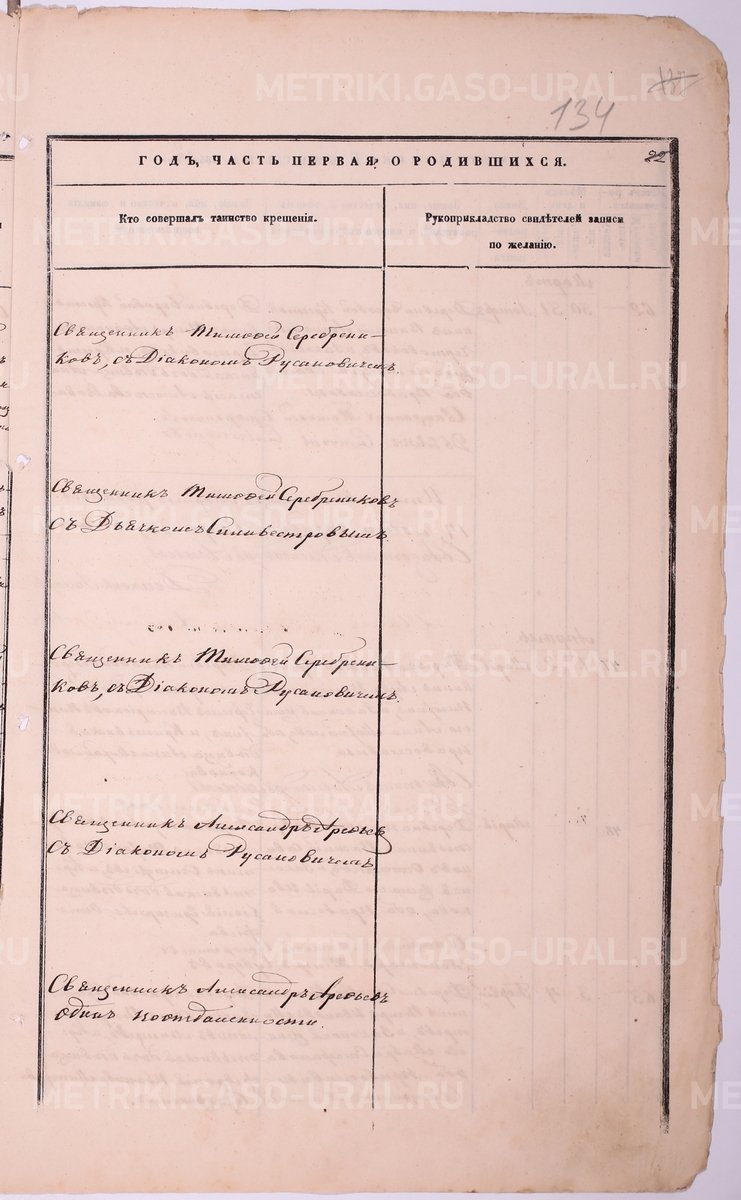 134
22
ГОДЪ, ЧАСТЬ ПЕРВАЯ, О РОДИВШИХСЯ.
Кто совершалъ таинство крещенія.
Рукоприкладство свидѣтелей записи
по желанію.
Священникъ Тимоѳей Серебрени-
ковъ, съ Діакономъ Русановичемъ.
Священникъ Тимоѳей Серебрениковъ
съ Дьячкомъ Сильвестровымъ.
Священникъ Тимоѳей Серебрени-
ковъ, съ Діакономъ Русановичемъ.
Священникъ Александръ Арефьев
съ Діакономъ Русановичемъ.
Священникъ Александръ Арефьевъ
одинъ поотдаленности.
METRIKI.GASO-URAL.RU